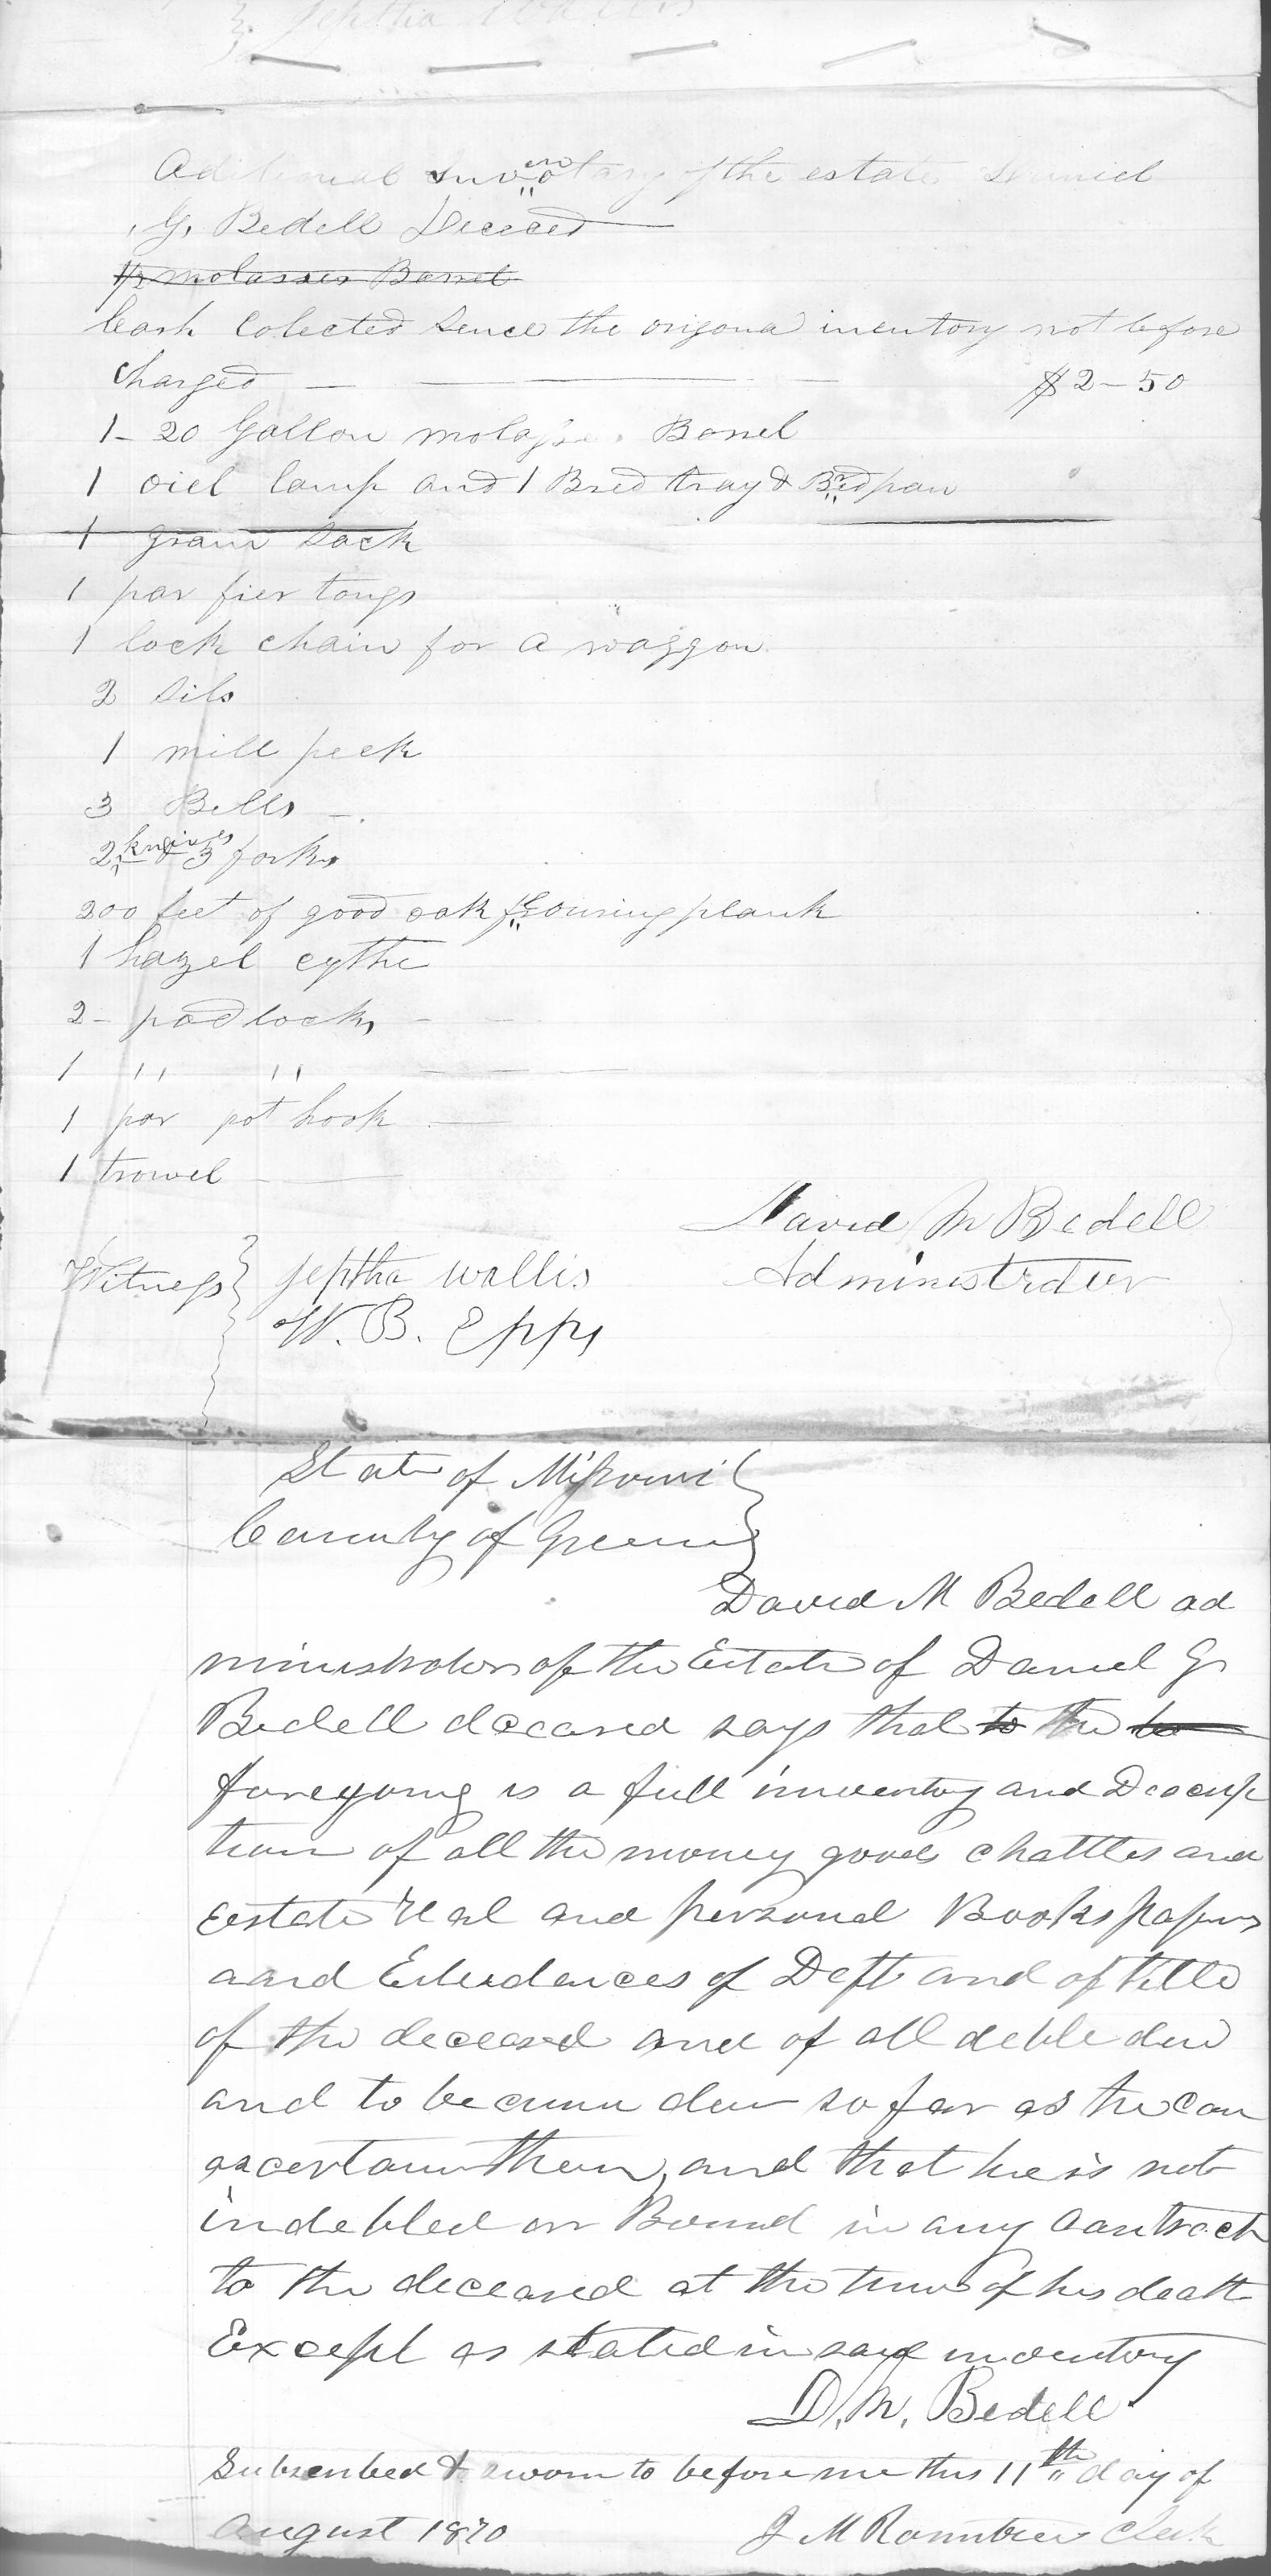 Jeptha Wallis
Aditional Invventory of the estate Daniel
G, Bedell Dececed
1/2 molasses Barrel
Cash Colected Sence the origonal inventory not before
charged $2-50
1- 20 Gallon molasses Barrel
1 oiel lamp and 1 Bred tray & Bredpan
1 grain Sack
1 par fier tongs
1 lock chain for a waggon
2 Sils
1 mill peck
3 Bells
2 knives & 3 forks
200 feet of good oak flouring plank
1 hazel cythe
2- padlocks
1 " "
1 par pot hook
1 trowel
David M Bedell
Witness Jeptha Wallis Administrator
W. B. Epps
State of Missouri
County of Greene
David M Bedell ad
ministrator of the Estate of Daniel G
Bedell deceased says that to the to
foregoing is a full inventory and Descrip
tion of all the money goods chattles and
Eestate real and personal Books papers
aand Evidences of Deft and of title
of the deceased and of all debts due
and to become due so far as he can
ascertain them, and that he is not
indebted or Bound in any contract
to the deceased at the time of his death
Except as stated in said inventory
D. M. Bedell
Subscribed & sworn to before me this 11th day of
August 1870 J M Rountree Clerk